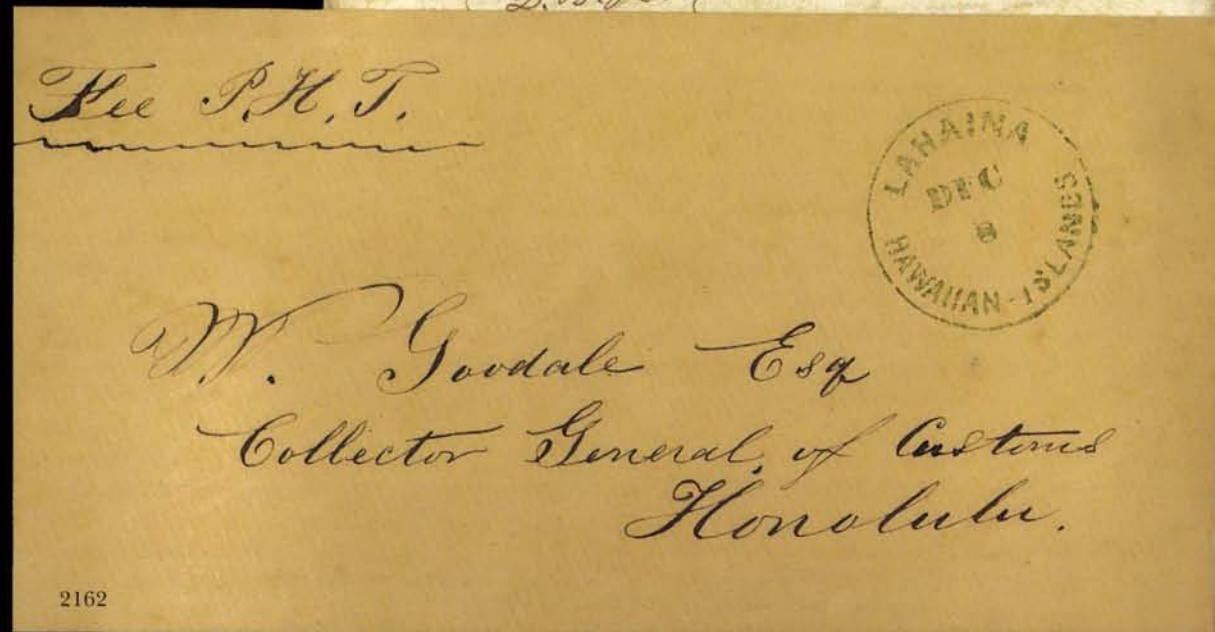 Fee P.H.T.
LAHAINA
DEC
8
HAWAIIAN-ISLANDS
W. Goodale Esq
Collector General, of Customs
Honolulu.
2162